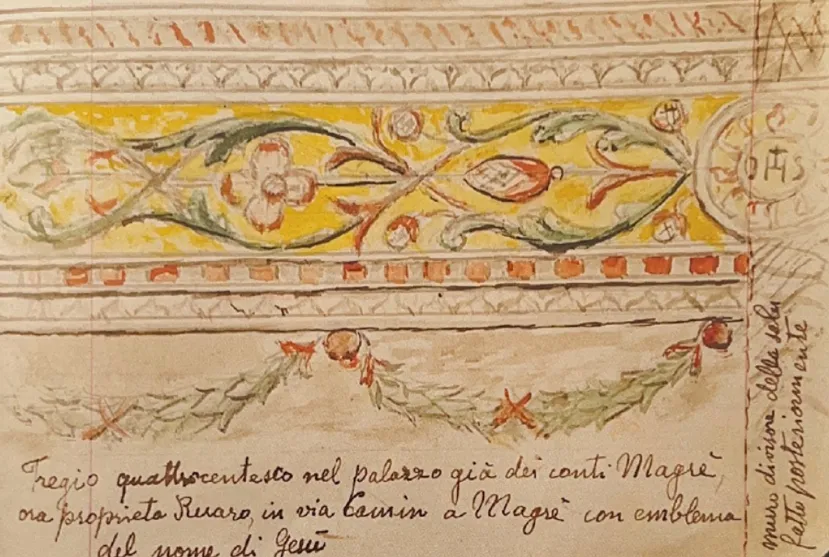 OHS
Fregio quattrocentesco nel palazzo già dei conti Magrè,
ora proprieta Ruaro, in via Camin a Magrè con emblema
del nome di Gesù
muro divisore della sala
fatto posteriormente